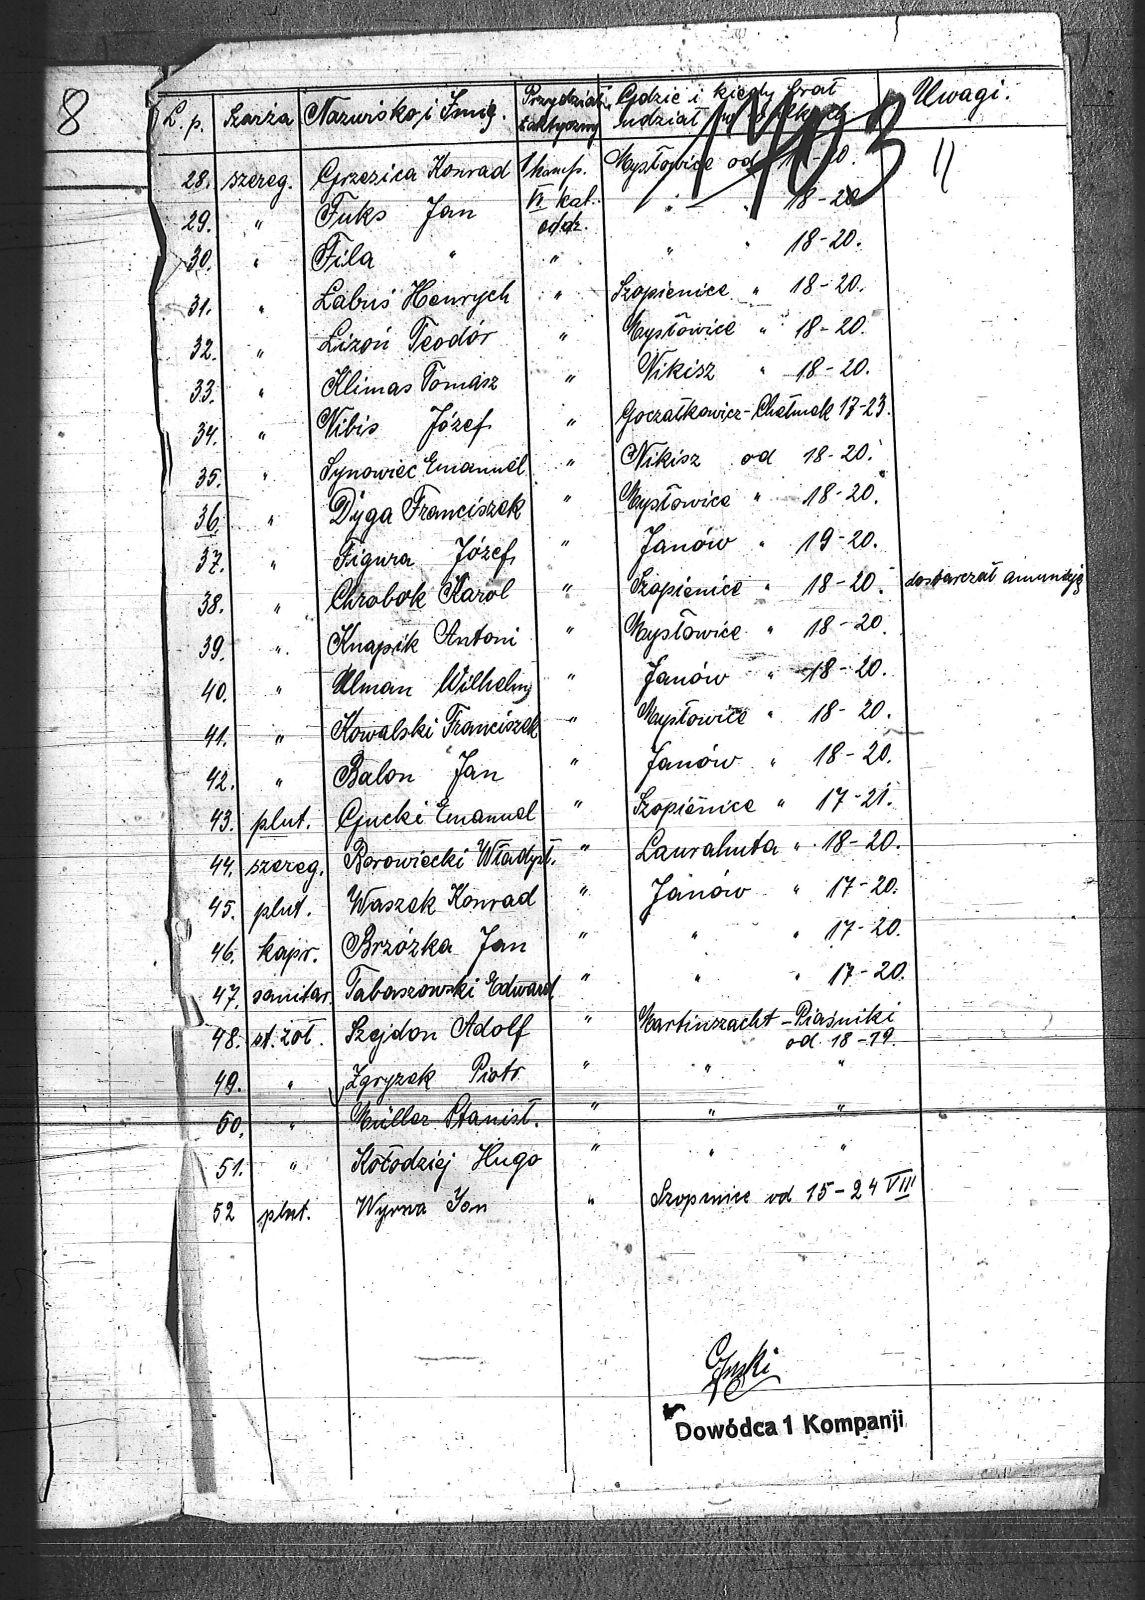 8
L. p. Szarża Nazwisko i Imię. Przydział taktyczny Gdzie i kiedy brał udział Uwagi.
1703
28. szereg. Grzezica Konrad 1 komp. Mysłowice od 20. "
29. " Fuks Jan VI kat. oddz. " " 18-20
30. " Fila " " " " 18-20.
31. " Labus Henrych " Szopienice " 18-20.
32. " Lizoń Teodór " Mysłowice " 18-20.
33. " Klimas Tomasz " Nikisz " 18-20.
34. " Nibis Józef " Goczałkowicz-Chełmek 17-23.
35. " Synowiec Emanuel " Nikisz od 18-20.
36. " Dyga Franciszek " Mysłowice " 18-20.
37. " Figura Józef " Janów " 19-20.
38. " Chrobok Karol " Szopienice " 18-20. dostarczał amunicję
39. " Knapik Antoni " Mysłowice " 18-20.
40. " Ulman Wilhelm " Janów " 18-20.
41. " Kowalski Franciszek " Mysłowice " 18-20.
42. " Balon Jan " Janów " 18-20.
43. plut. Gucki Emanuel " Szopienice " 17-21.
44. szereg. Borowiecki Władysł. " Laurahuta " 18-20.
45. plut. Waszek Konrad " Janów " 17-20.
46. kapr. Brzózka Jan " " " 17-20.
47. sanitar. Tabaszowski Edward " " " 17-20.
48. st. żoł. Szejdon Adolf " Martinszacht - Piaśniki
od 18-19.
49. " Zgryzek Piotr " " "
50. " Müller Stanisł. " " "
51. " Kołodziej Hugo " " "
52 plut. Wyrwa Jon " Szopinice od 15-24 VIII
Dowódca 1 Kompanji